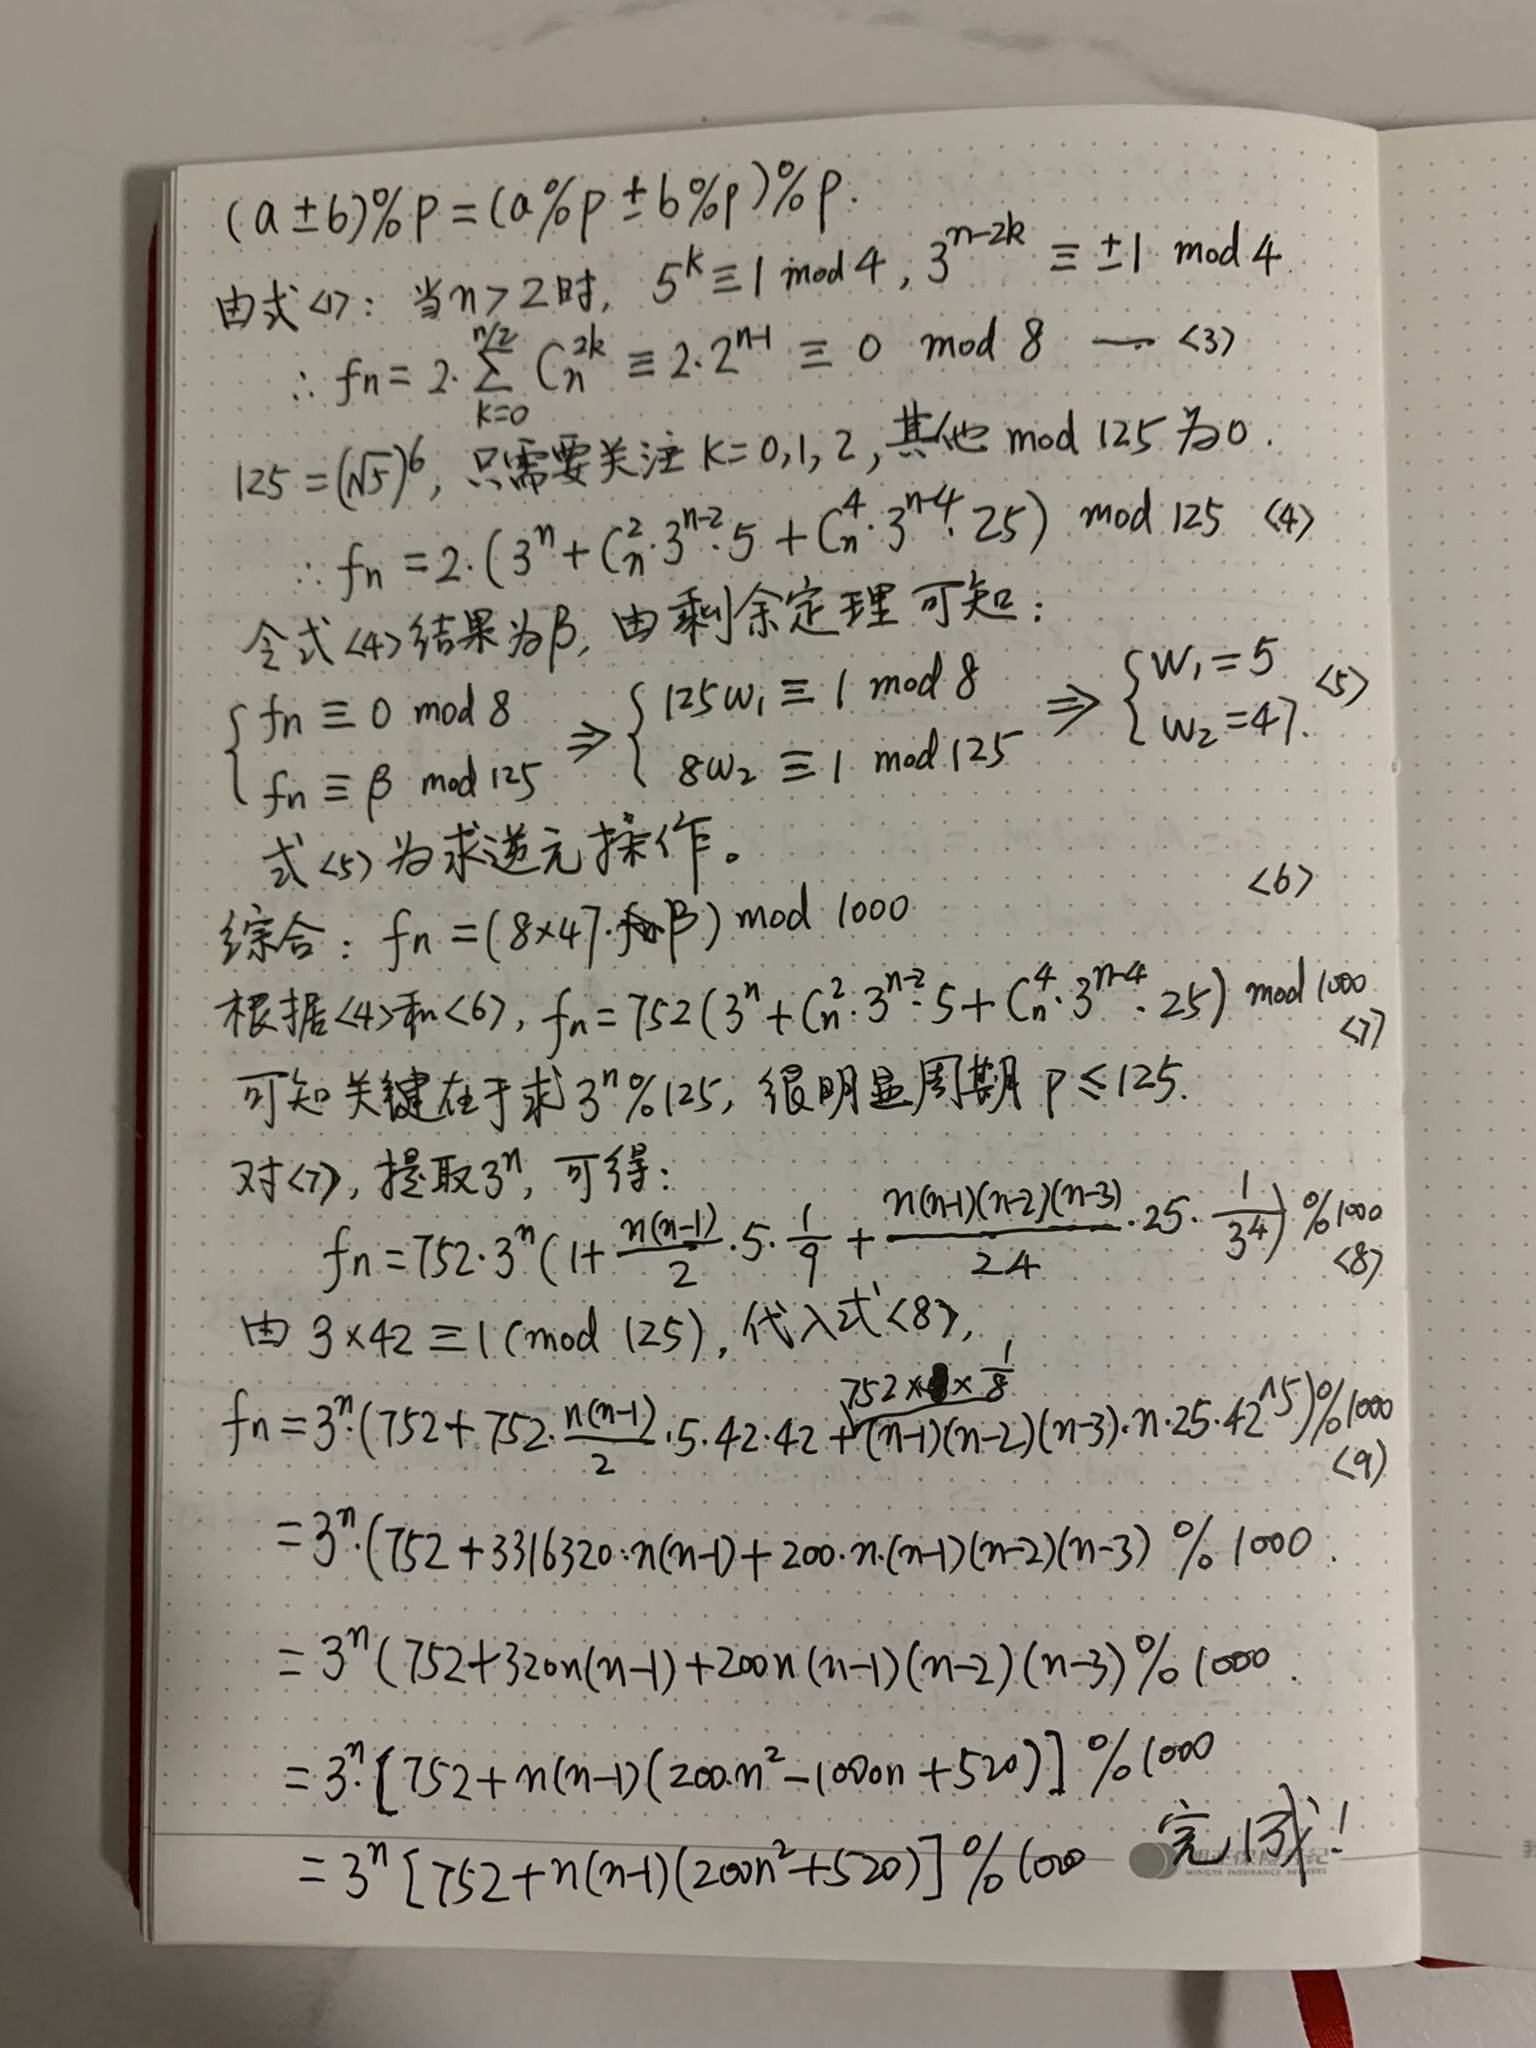 (a±b)%p=(a%p±b%p)%p.
由式<1>: 当n>2时, 5^k≡1 mod 4, 3^{n-2k} ≡ ±1 mod 4
∴ fn=2·∑_{k=0}^{n/2} C_n^{2k} ≡ 2·2^{n-1} ≡ 0 mod 8 — <3>
125=(√5)^6, 只需要关注 k=0,1,2, 其他 mod 125 为0.
∴ fn=2·(3^n+C_n^2·3^{n-2}·5+C_n^4·3^{n-4}·25) mod 125 <4>
令式<4>结果为β, 由剩余定理可知:
{fn≡0 mod 8 ⇒ {125w₁≡1 mod 8 ⇒ {w₁=5 <5>
fn≡β mod 125 8w₂≡1 mod 125 w₂=47.
式<5>为求逆元操作。
<6>
综合: fn=(8×47·β) mod 1000
根据<4>和<6>, fn=752(3^n+C_n^2·3^{n-2}·5+C_n^4·3^{n-4}·25) mod 1000
<7>
可知关键在于求3^n%125, 很明显周期 p≤125.
对<7>, 提取3^n, 可得:
fn=752·3^n(1+\frac{n(n-1)}{2}·5·\frac{1}{9}+\frac{n(n-1)(n-2)(n-3)}{24}·25·\frac{1}{3^4})%1000
<8>
由 3×42≡1(mod 125), 代入式<8>,
752× ×\frac{1}{8}
fn=3^n·(752+752·\frac{n(n-1)}{2}·5·42·42+(n-1)(n-2)(n-3)·n·25·42^5)%1000
<9>
=3^n·(752+3316320·n(n-1)+200·n·(n-1)(n-2)(n-3) % 1000.
=3^n(752+320n(n-1)+200n(n-1)(n-2)(n-3)%1000.
=3^n·[752+n(n-1)(200·n²-1000n+520)]%1000
=3^n[752+n(n-1)(200n²+520)]%1000 完成!
MINGYA INSURANCE BROKERS